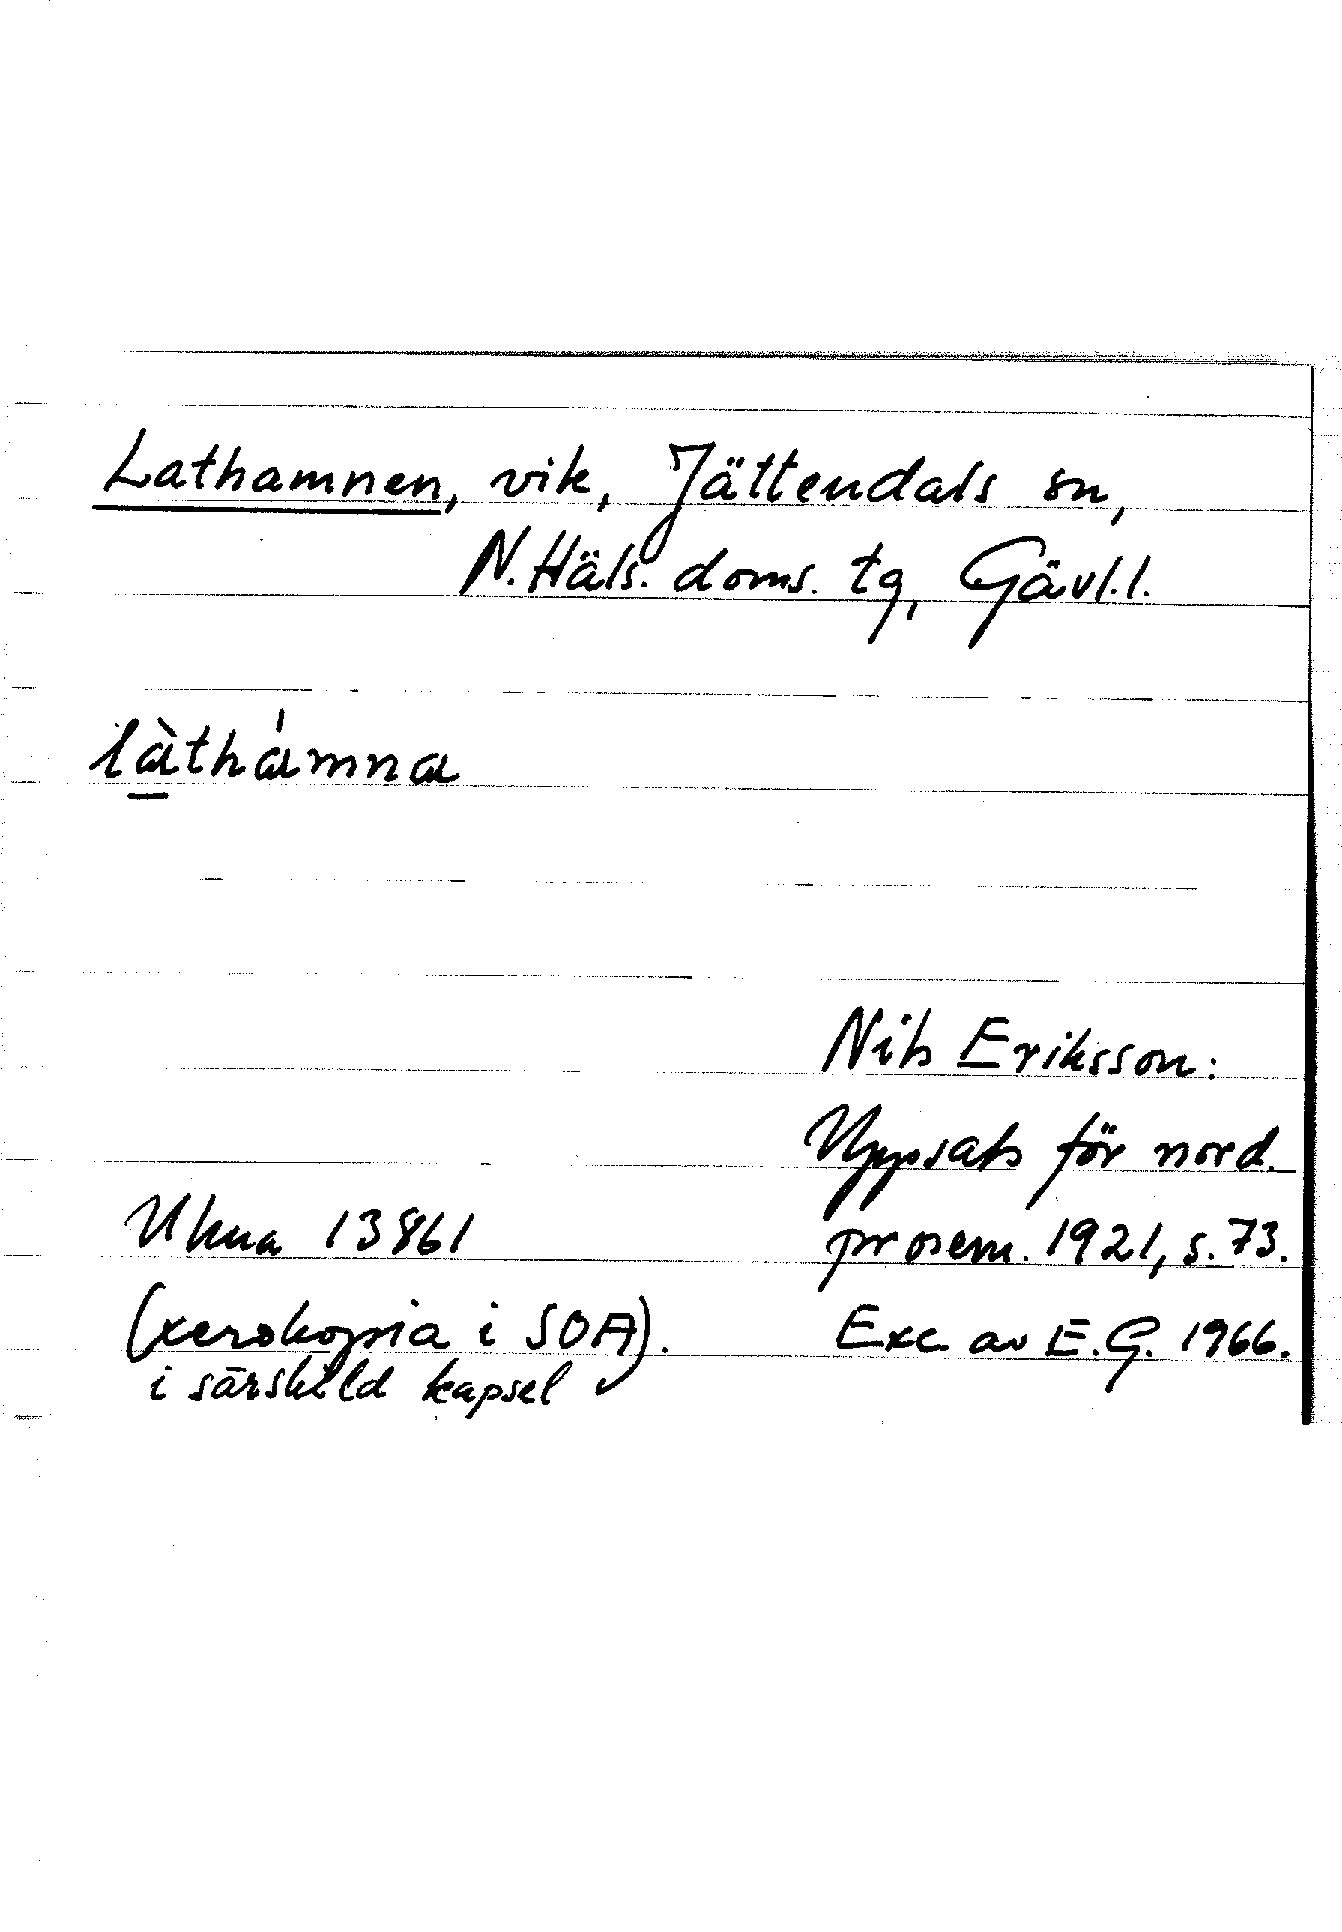 Lathamnen, vik, Jättendals sn,
N. Häls. doms. tg, Gävl.l.
là̱thámna
Nils Eriksson:
Uppsats för nord.
prosem. 1921, s. 73.
Exc. av E.G. 1966.
13861
(xerokopia i SOA).
i särskild kapsel